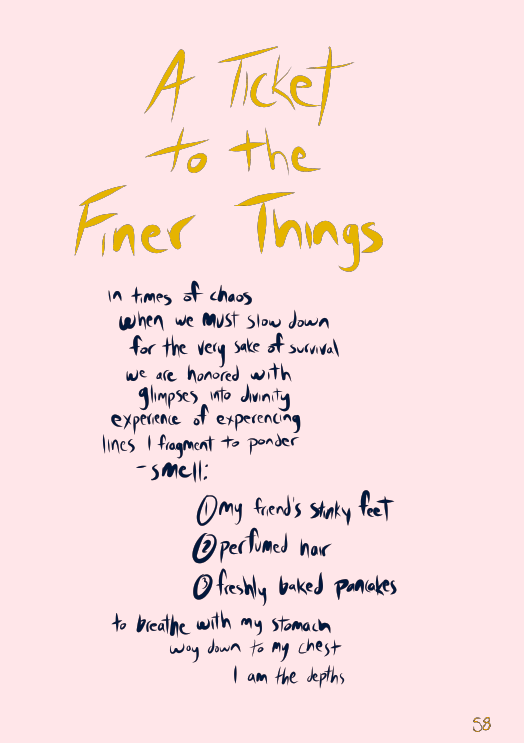 A Ticket
to the
Finer Things
in times of chaos
when we must slow down
for the very sake of survival
we are honored with
glimpses into divinity
experience of experencing
lines I fragment to ponder
- smell:
① my friend's stinky feet
② perfumed hair
③ freshly baked pancakes
to breathe with my stomach
way down to my chest
I am the depths
58